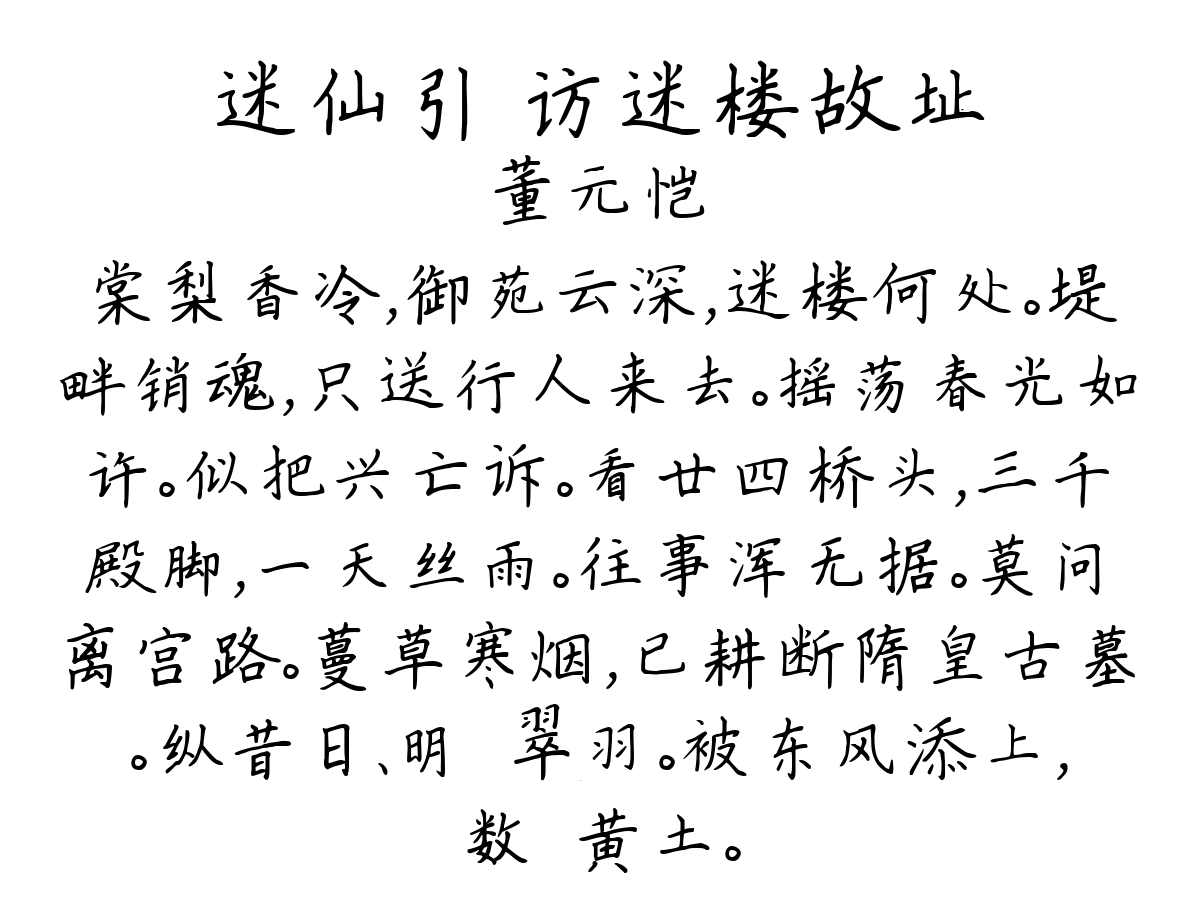 迷仙引 访迷楼故址
董元恺
棠梨香冷,御苑云深,迷楼何处。堤
畔销魂,只送行人来去。摇荡春光如
许。似把兴亡诉。看廿四桥头,三千
殿脚,一天丝雨。往事浑无据。莫问
离宫路。蔓草寒烟,已耕断隋皇古墓
。纵昔日、明 翠羽。被东风添上,
数 黄土。